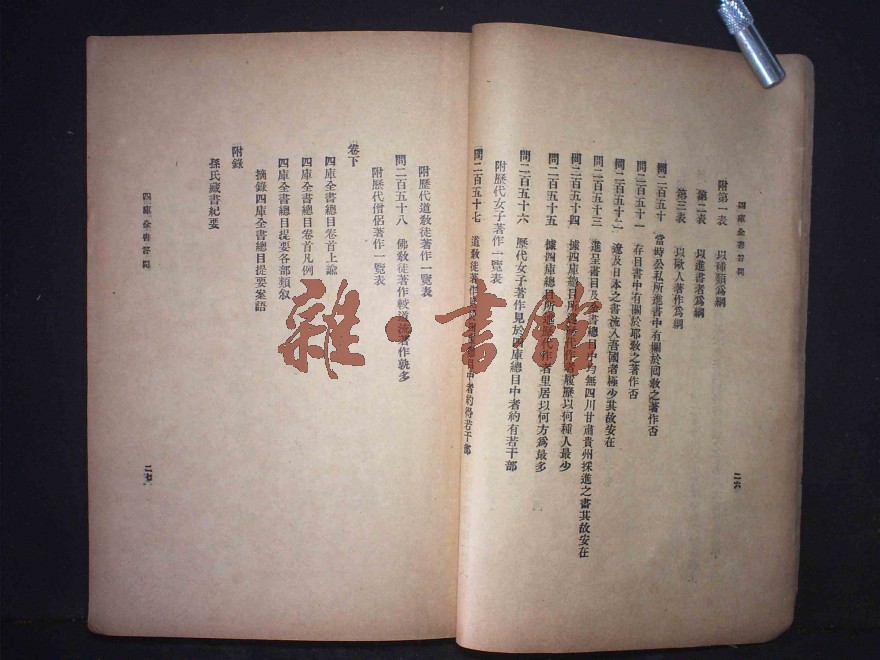 四庫全書答問
附第一表　以種類爲綱
第二表　以進書者爲綱
第三表　以歐人著作爲綱
問二百五十　當時公私所進書中有關於回敎之著作否
問二百五十一　存目書中有關於耶敎之著作否
問二百五十二　遼及日本之書流入吾國者極少其故安在
問二百五十三　進呈書目及全書總目中均無四川甘肅貴州採進之書其故安在
問二百五十四　據四庫總目所 履歷以何種人最少
問二百五十五　據四庫總目所 歷代作者里居以何方爲最多
問二百五十六　歷代女子著作見於四庫總目中者約有若干部
附歷代女子著作一覽表
問二百五十七　道敎徒著作 總目中者約得若干部
二六
附歷代道敎徒著作一覽表
問二百五十八　佛敎徒著作較道流著作孰多
附歷代僧侶著作一覽表
卷下
四庫全書總目卷首上諭
四庫全書總目卷首凡例
四庫全書總目提要各部類敘
摘錄四庫全書總目提要案語
附錄
孫氏藏書紀要
四庫全書答問
二七
雜·書館